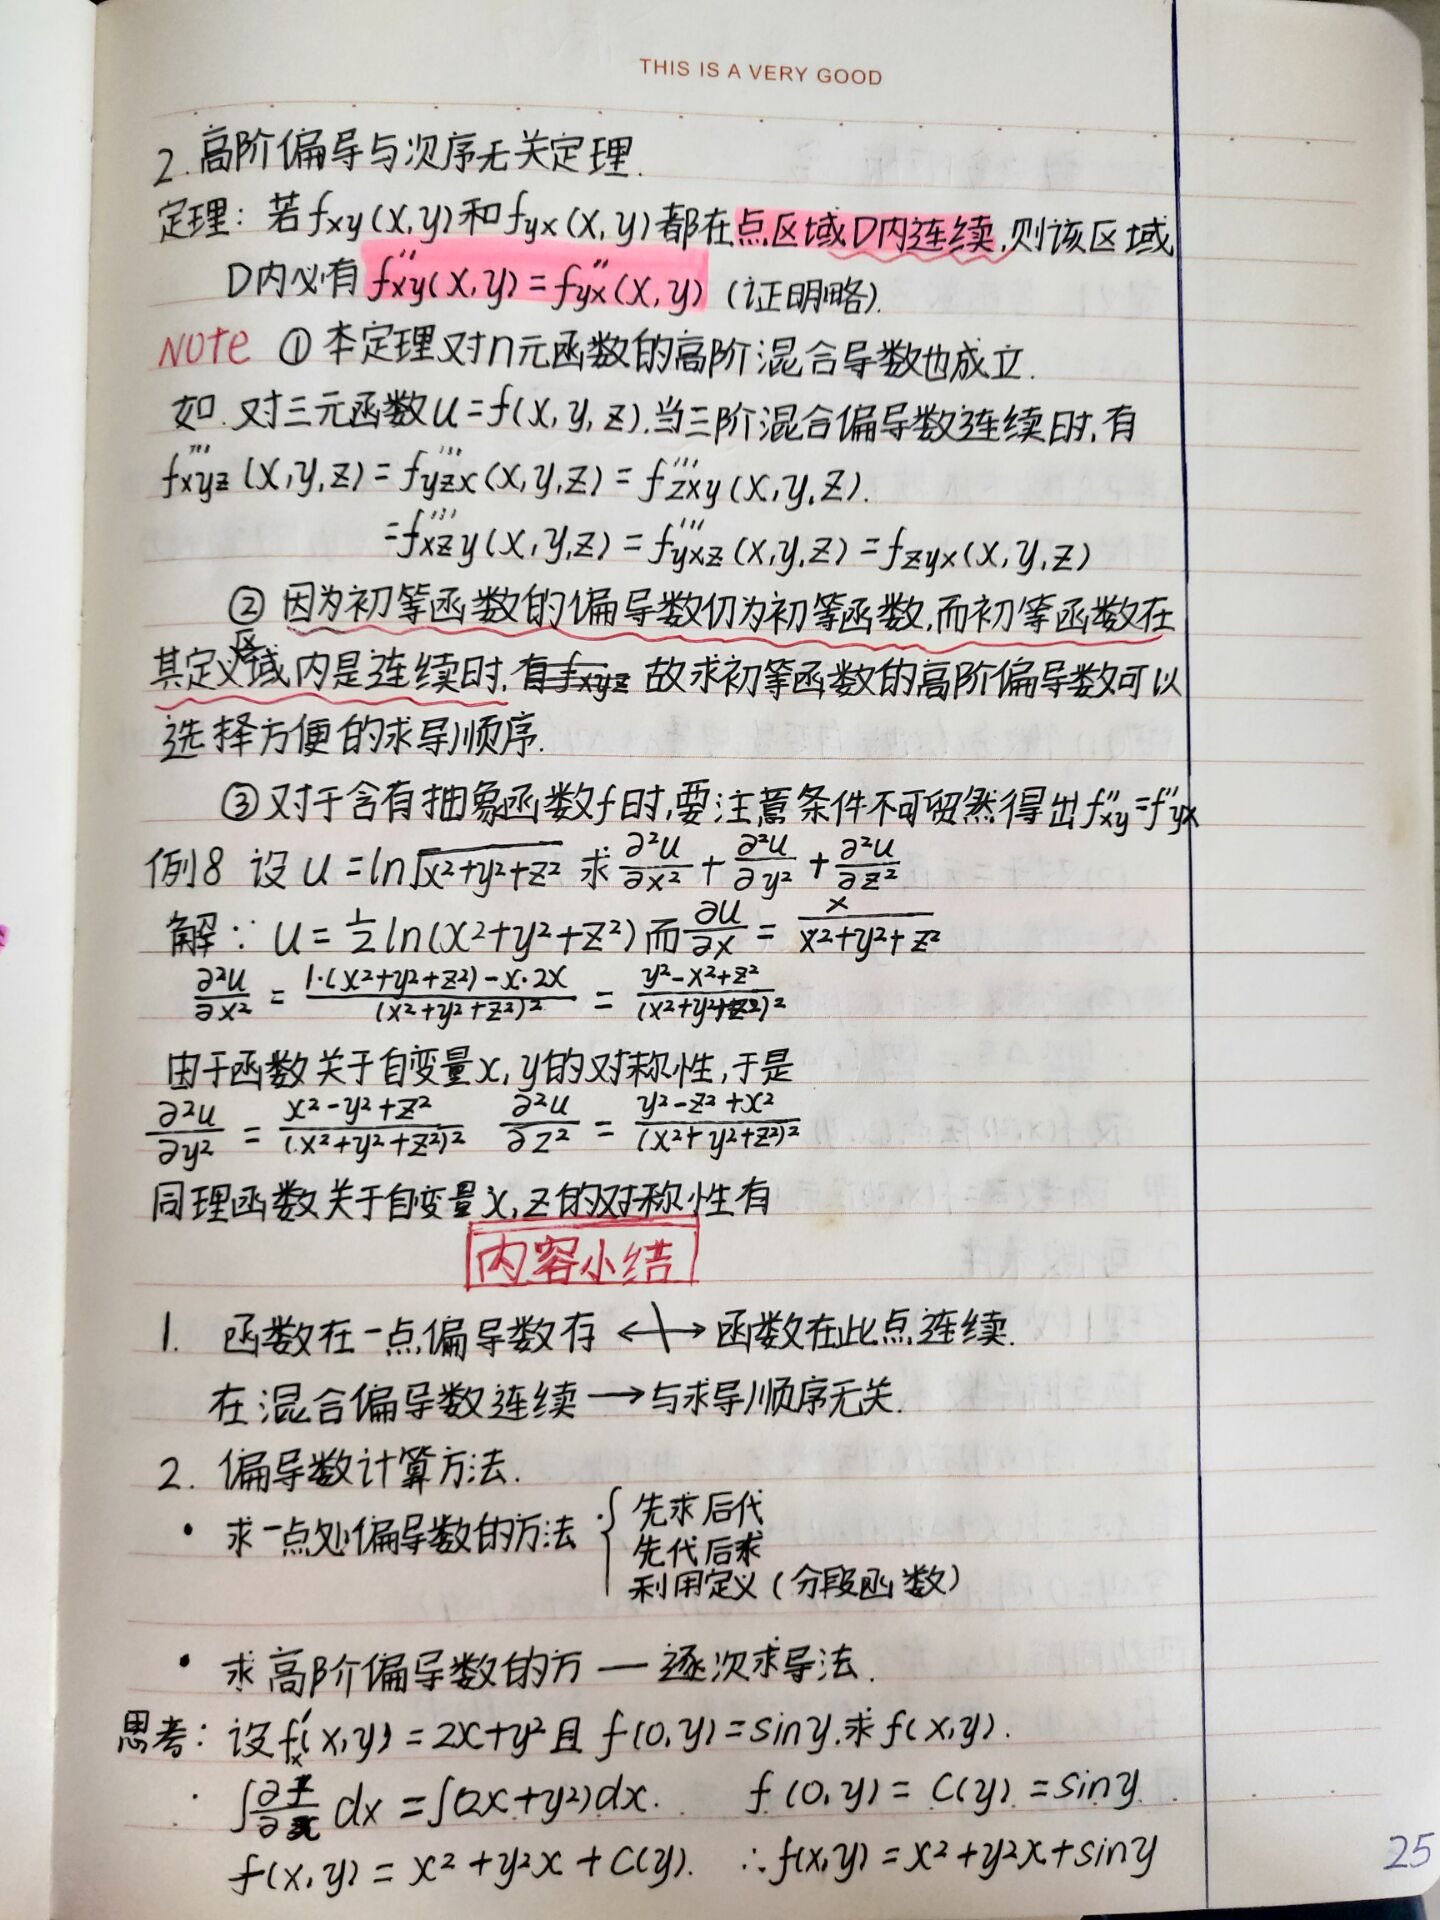 THIS IS A VERY GOOD
2.高阶偏导与次序无关定理.
定理: 若fxy(x,y)和fyx(x,y)都在点区域D内连续,则该区域
D内必有 f''xy(x,y)=f''yx(x,y) (证明略).
NOTE ①本定理对n元函数的高阶混合导数也成立.
如.对三元函数u=f(x,y,z).当三阶混合偏导数连续时,有
f'''xyz(x,y,z)=f'''yzx(x,y,z)=f'''zxy(x,y,z).
=f'''xzy(x,y,z)=f'''yxz(x,y,z)=fzyx(x,y,z)
②因为初等函数的偏导数仍为初等函数,而初等函数在
其定义区域内是连续时,有fxyz 故求初等函数的高阶偏导数可以
选择方便的求导顺序.
③对于含有抽象函数f时,要注意条件不可贸然得出f''xy=f''yx
例8 设u=ln√(x²+y²+z²) 求 ∂²u/∂x² + ∂²u/∂y² + ∂²u/∂z²
解∵ u=½ln(x²+y²+z²)而 ∂u/∂x = x/(x²+y²+z²)
∂²u/∂x² = (1·(x²+y²+z²)-x·2x)/(x²+y²+z²)² = (y²-x²+z²)/(x²+y²+z²)²
由于函数关于自变量x,y的对称性,于是
∂²u/∂y² = (x²-y²+z²)/(x²+y²+z²)² ∂²u/∂z² = (y²-z²+x²)/(x²+y²+z²)²
同理函数关于自变量x,z的对称性有
内容小结
1. 函数在一点偏导数存 ↮ 函数在此点连续.
在混合偏导数连续→与求导顺序无关.
2. 偏导数计算方法.
• 求一点处偏导数的方法 { 先求后代
先代后求
利用定义(分段函数)
• 求高阶偏导数的方 — 逐次求导法.
思考: 设f'x(x,y)=2x+y²且 f(0,y)=siny.求f(x,y).
∫∂f/∂x dx=∫(2x+y²)dx. f(0,y)=C(y)=siny.
f(x,y)=x²+y²x+C(y). ∴f(x,y)=x²+y²x+siny
25